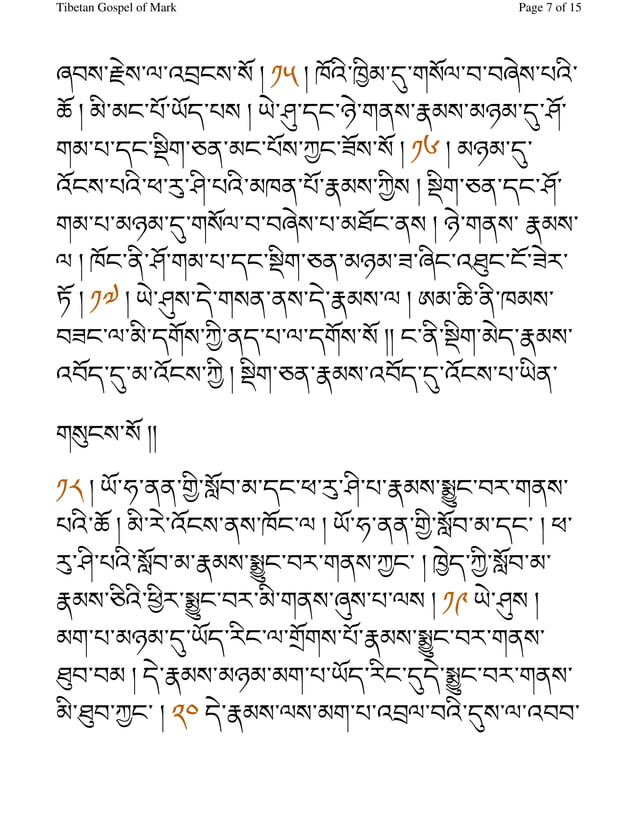 Tibetan Gospel of Mark Page 7 of 15
ཞབས་རྗེས་ལ་འབྲངས་སོ། ༡༥ །ཁོའི་ཁྱིམ་དུ་གསོལ་བ་བཞེས་པའི་
ཚེ། མི་མང་པོ་ཡོད་པས། ཡེ་ཤུ་དང་ཉེ་གནས་རྣམས་མཉམ་དུ་ཤོ་
གམ་པ་དང་སྡིག་ཅན་མང་པོས་ཀྱང་ཟོས་སོ། ༡༦ །མཉམ་དུ་
འོངས་པའི་ཕ་རུ་ཤི་པའི་མཁན་པོ་རྣམས་ཀྱིས། སྡིག་ཅན་དང་ཤོ་
གམ་པ་མཉམ་དུ་གསོལ་བ་བཞེས་པ་མཐོང་ནས། ཉེ་གནས་ རྣམས་
ལ། ཁོང་ནི་ཤོ་གམ་པ་དང་སྡིག་ཅན་མཉམ་ཟ་ཞིང་འཐུང་ངོ་ཟེར་
ཏོ། ༡༧ །ཡེ་ཤུས་དེ་གསན་ནས་དེ་རྣམས་ལ། ཨམ་ཆི་ནི་ཁམས་
བཟང་ལ་མི་དགོས་ཀྱི་ནད་པ་ལ་དགོས་སོ༎ ང་ནི་སྡིག་མེད་རྣམས་
འབོད་དུ་མ་འོངས་ཀྱི། སྡིག་ཅན་རྣམས་འབོད་དུ་འོངས་པ་ཡིན་
གསུངས་སོ༎
༡༨ །ཡོ་ཧ་ནན་གྱི་སློབ་མ་དང་ཕ་རུ་ཤི་པ་རྣམས་སྨྱུང་བར་གནས་
པའི་ཚེ། མི་རེ་འོངས་ནས་ཁོང་ལ། ཡོ་ཧ་ནན་གྱི་སློབ་མ་དང་། ཕ་
རུ་ཤི་པའི་སློབ་མ་རྣམས་སྨྱུང་བར་གནས་ཀྱང་། ཁྱེད་ཀྱི་སློབ་མ་
རྣམས་ཅིའི་ཕྱིར་སྨྱུང་བར་མི་གནས་ཞུས་པ་ལས། ༡༩ ཡེ་ཤུས།
མག་པ་མཉམ་དུ་ཡོད་རིང་ལ་གྲོགས་པོ་རྣམས་སྨྱུང་བར་གནས་
ཐུབ་བམ། དེ་རྣམས་མཉམ་མག་པ་ཡོད་རིང་དུདེ་སྨྱུང་བར་གནས་
མི་ཐུབ་ཀྱང་། ༢༠ དེ་རྣམས་ལས་མག་པ་འབྲལ་བའི་དུས་ལ་འབབ་